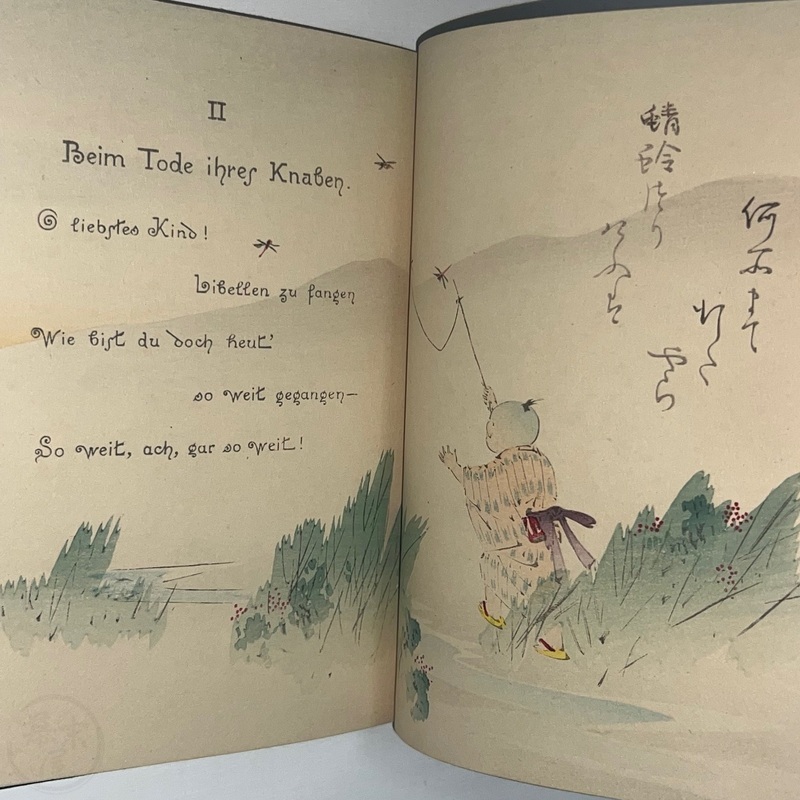 II
Beim Tode ihres Knaben.
O liebstes Kind!
Libellen zu fangen
Wie bist du doch heut'
so weit gegangen—
So weit, ach, gar so weit!
蜻蛉つり
けふは
何所まて
行た
やら